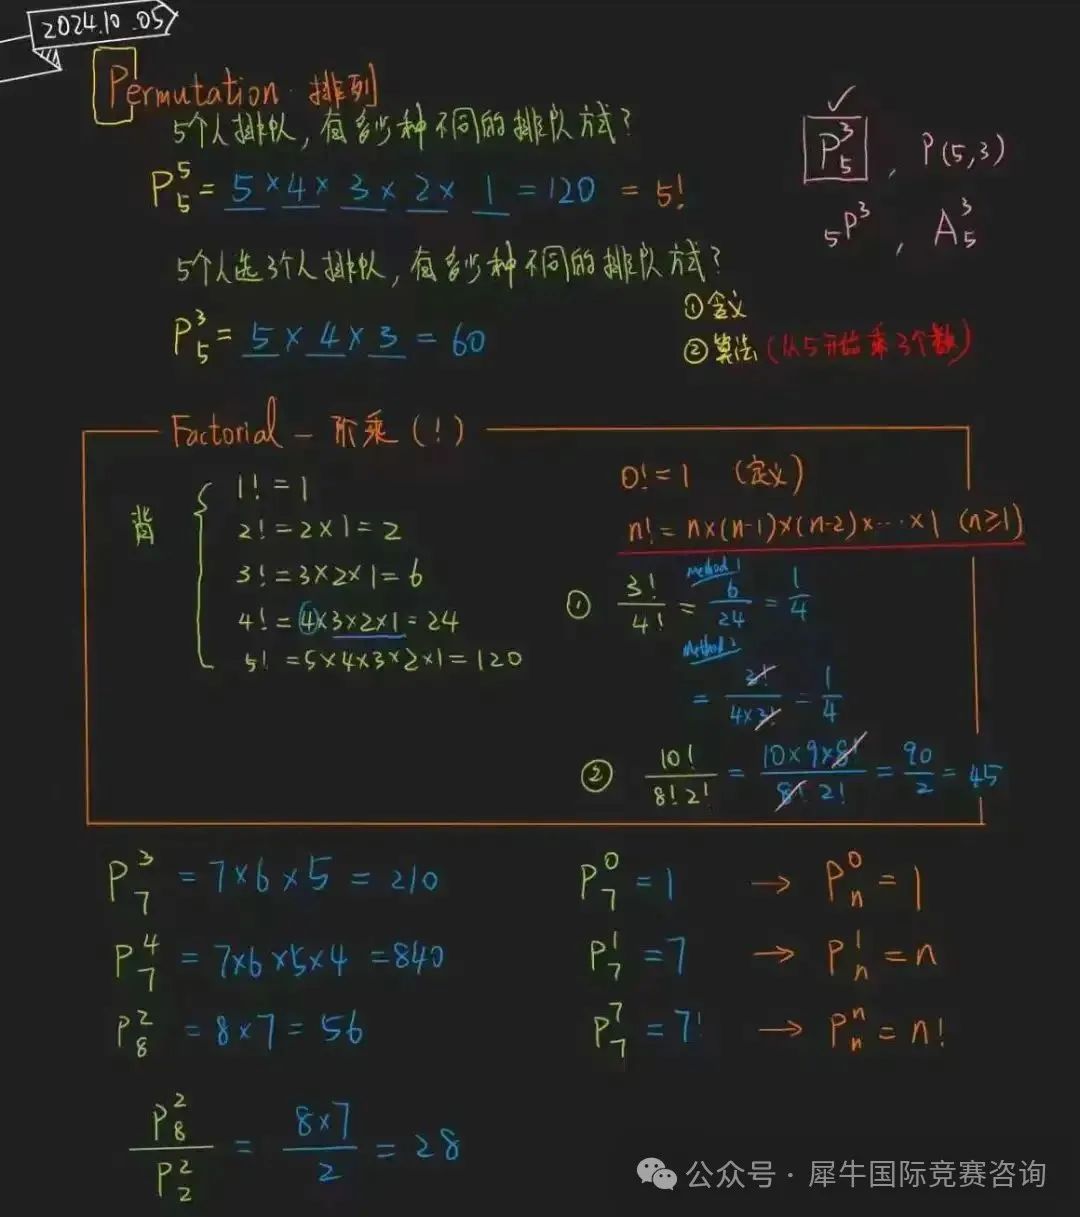 2024.10.05
Permutation 排列
5个人排队，有多少种不同的排队方式？
P₅⁵ = 5 × 4 × 3 × 2 × 1 = 120 = 5!
✓
P₅³ , P(5,3)
₅P³ , A₅³
5个人选3个人排队，有多少种不同的排队方式？
P₅³ = 5 × 4 × 3 = 60
① 含义
② 算法 (从5开始乘3个数)
Factorial — 阶乘 (!)
背
1! = 1
2! = 2×1 = 2
3! = 3×2×1 = 6
4! = 4×3×2×1 = 24
5! = 5×4×3×2×1 = 120
0! = 1 (定义)
n! = n×(n-1)×(n-2)×···×1 (n≥1)
① 3!/4! = 6/24 = 1/4
Method 1
Method 2
= 3!/4×3! = 1/4
② 10!/8!2! = 10×9×8!/8!·2! = 90/2 = 45
P₇³ = 7×6×5 = 210
P₇⁴ = 7×6×5×4 = 840
P₈² = 8×7 = 56
P₇⁰ = 1 → Pₙ⁰ = 1
P₇¹ = 7 → Pₙ¹ = n
P₇⁷ = 7! → Pₙⁿ = n!
P₈²/P₂² = 8×7/2 = 28
公众号·犀牛国际竞赛咨询